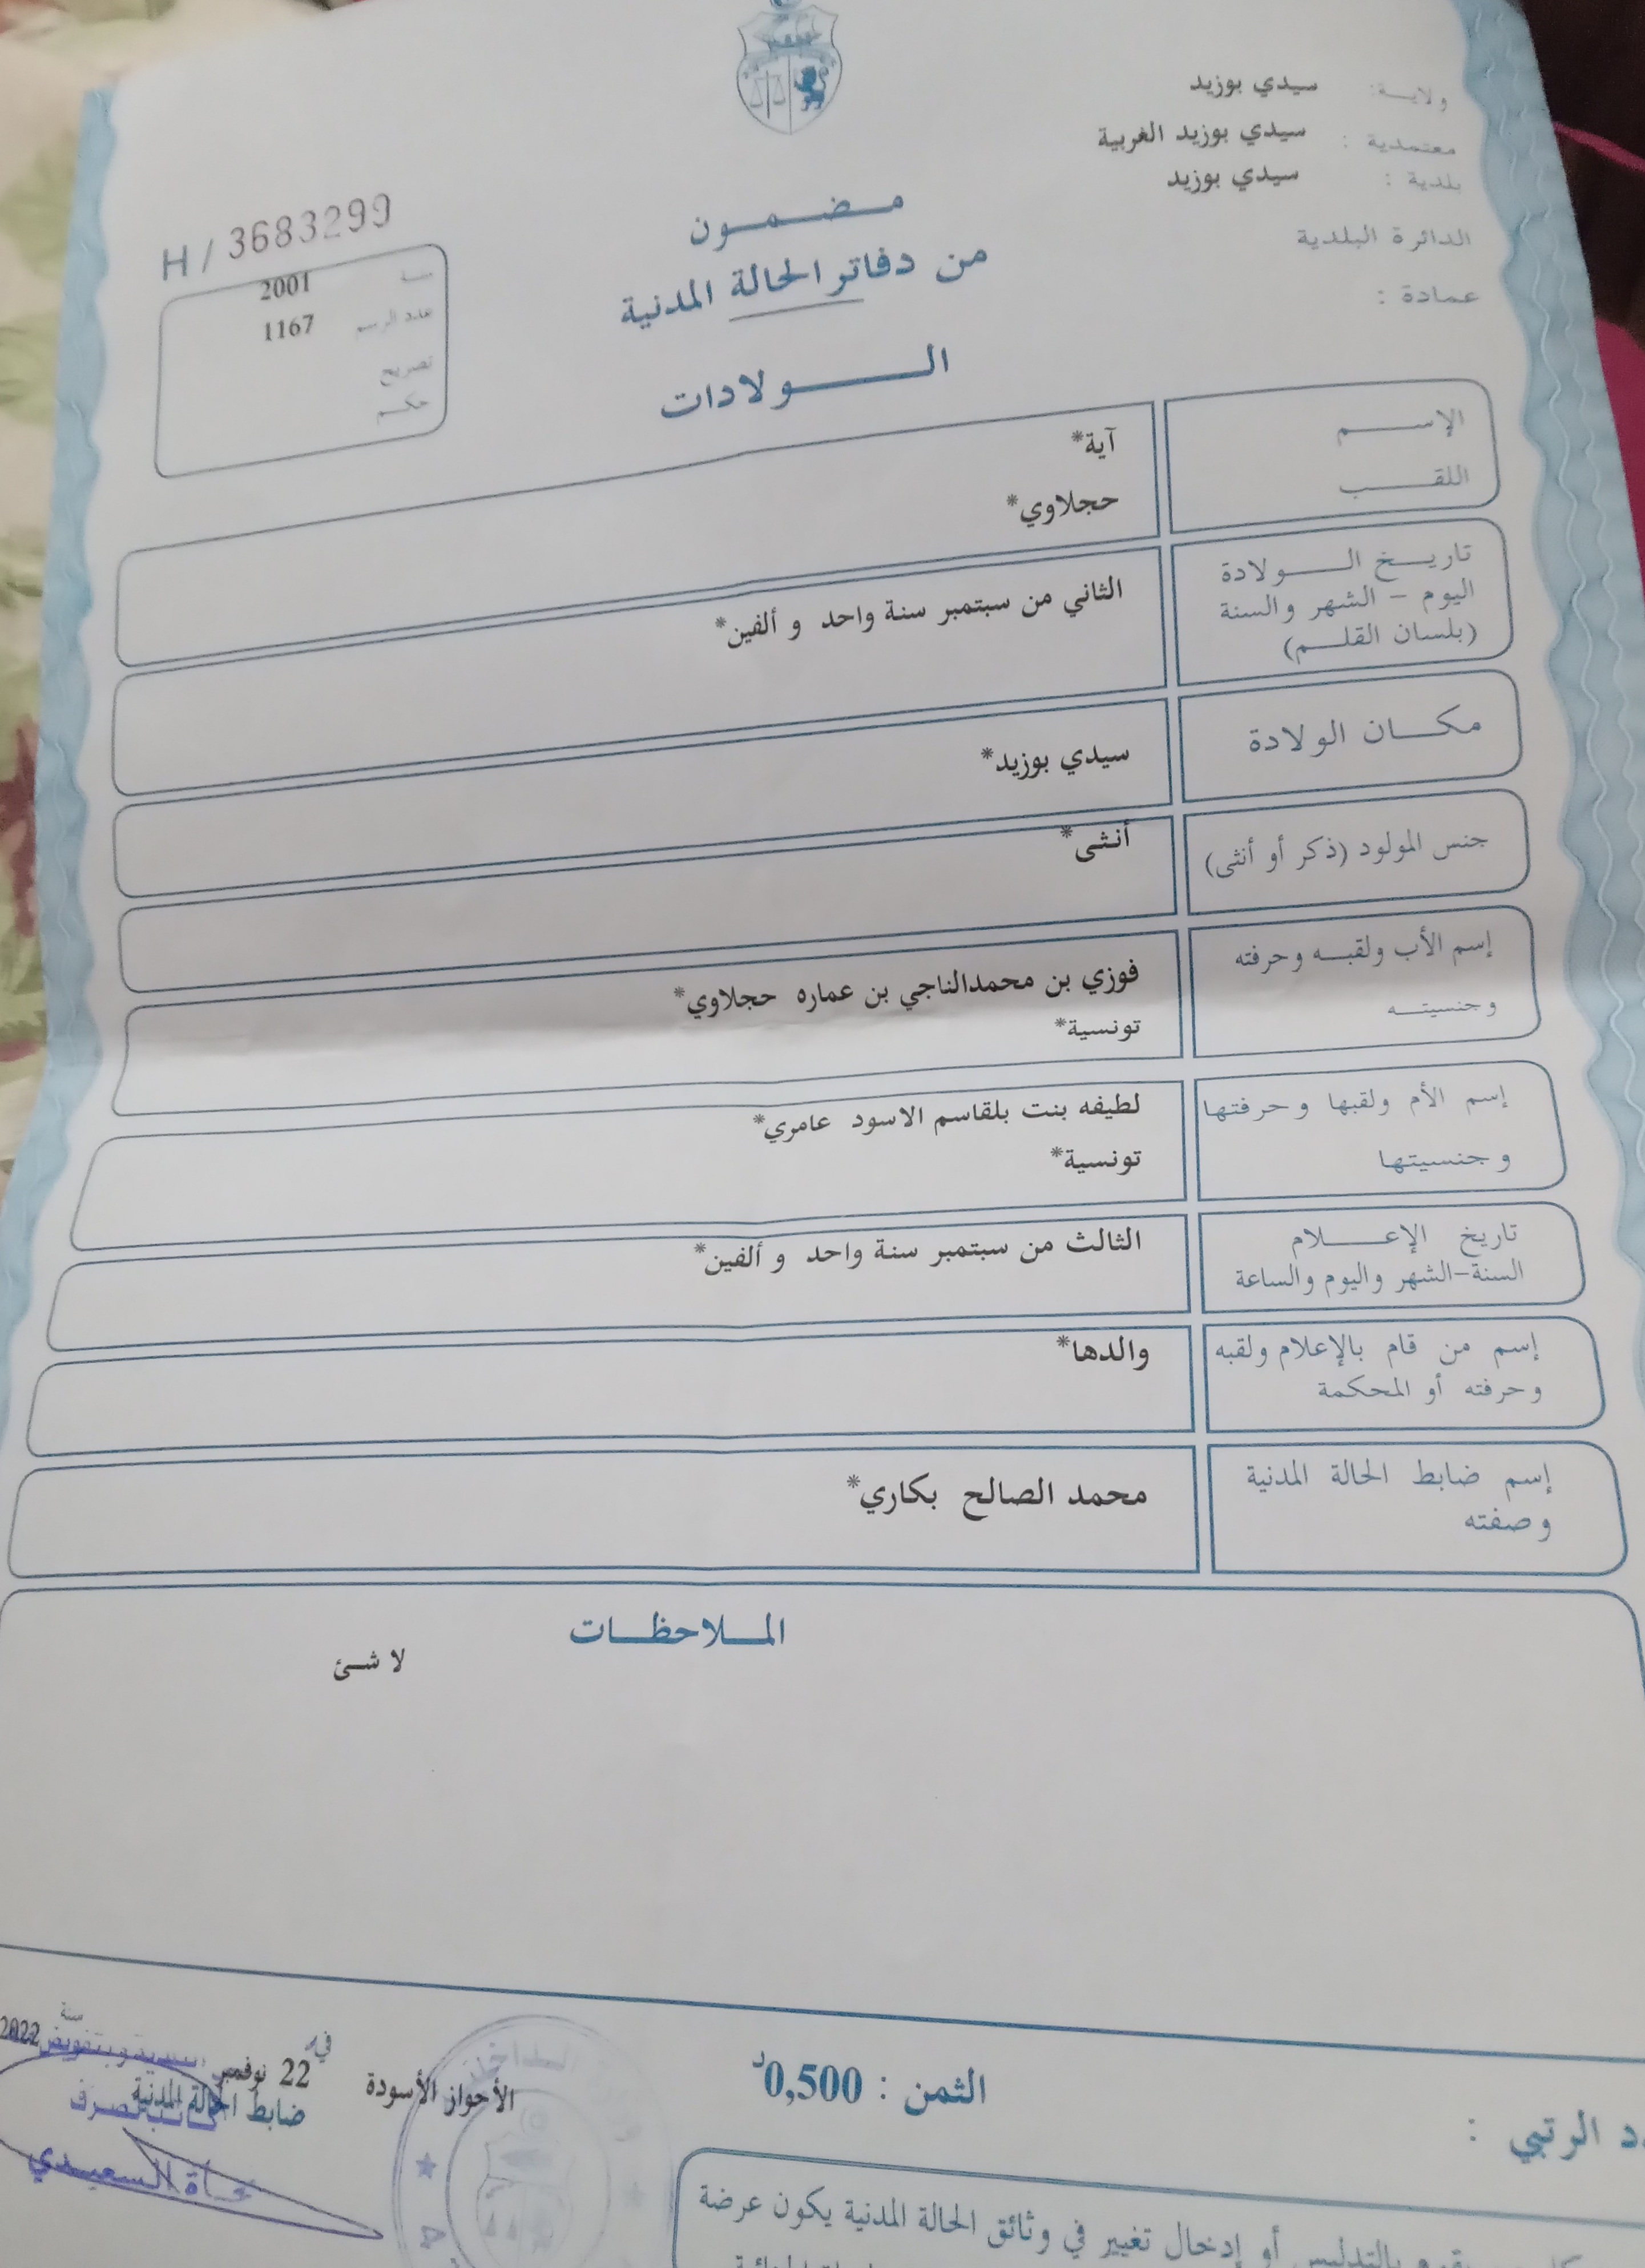 ولاية: سيدي بوزيد
معتمدية : سيدي بوزيد الغربية
بلدية : سيدي بوزيد
الدائرة البلدية
عمادة :
مضمون
من دفاتر الحالة المدنية
الولادات
H / 3683299
سنة 2001
عدد الرسم 1167
تصريح
حكم
الإسم آية*
اللقب حجلاوي*
تاريخ الولادة
اليوم - الشهر والسنة
(بلسان القلم)
الثاني من سبتمبر سنة واحد و ألفين*
مكان الولادة
سيدي بوزيد*
جنس المولود (ذكر أو أنثى)
أنثى*
إسم الأب ولقبه وحرفته
وجنسيته
فوزي بن محمدالناجي بن عماره حجلاوي*
تونسية*
إسم الأم ولقبها وحرفتها
وجنسيتها
لطيفه بنت بلقاسم الاسود عامري*
تونسية*
تاريخ الإعلام
السنة-الشهر واليوم والساعة
الثالث من سبتمبر سنة واحد و ألفين*
إسم من قام بالإعلام ولقبه
وحرفته أو المحكمة
والدها*
إسم ضابط الحالة المدنية
وصفته
محمد الصالح بكاري*
الملاحظات
لا شئ
الرتبي :
الثمن : 0,500د
الأحواز الأسودة في 22 نوفمبر سنة 2022
ضابط الحالة المدنية
السعيدي
بالتدليس أو إدخال تغيير في وثائق الحالة المدنية يكون عرضة